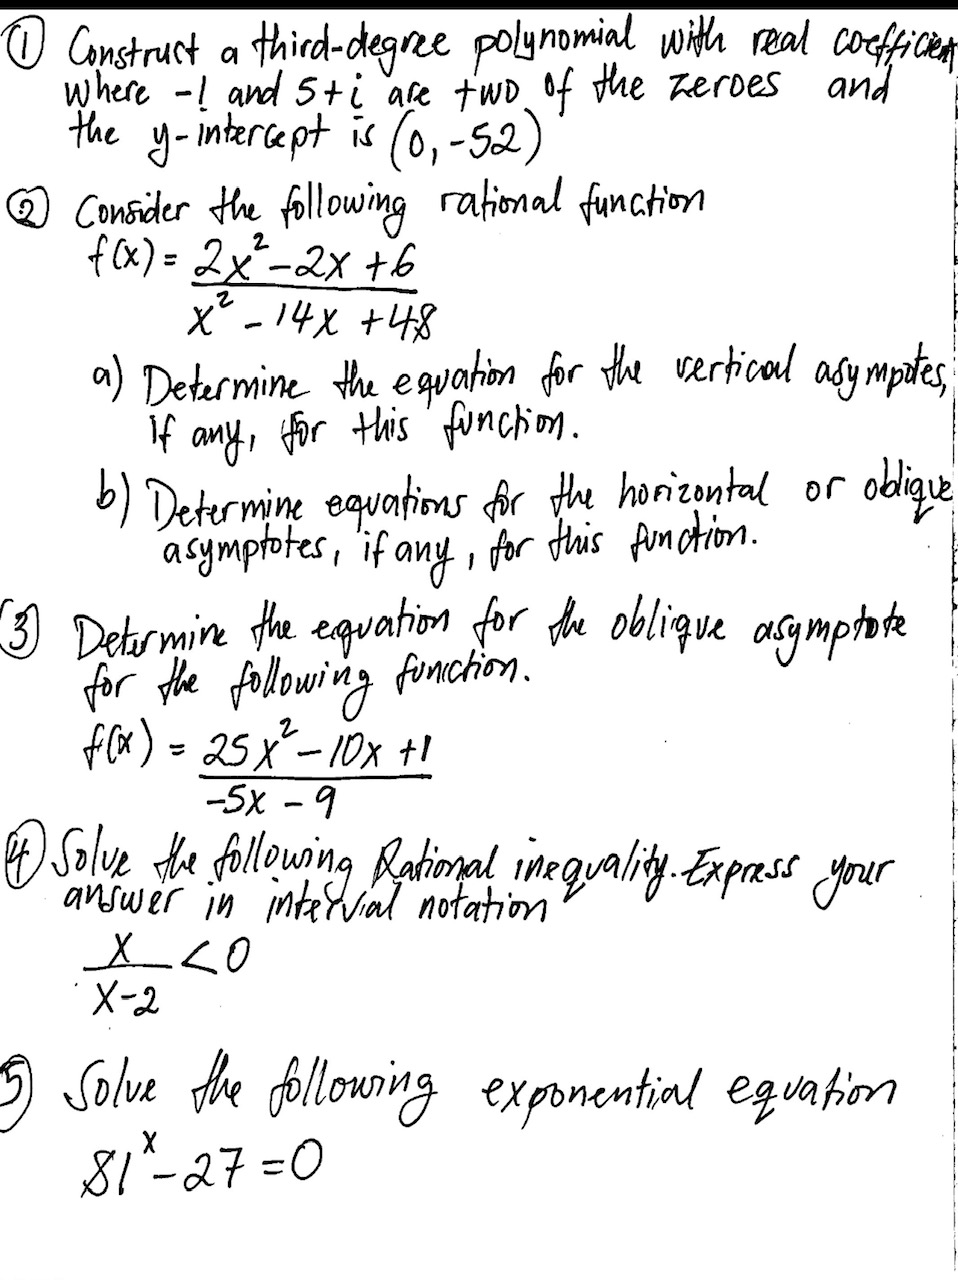 ① Construct a third-degree polynomial with real coefficient
where -1 and 5+i are two of the zeroes and
the y-intercept is (0,-52)
② Consider the following rational function
f(x) = 2x²-2x+6
x²-14x+48
a) Determine the equation for the vertical asympotes,
if any, for this function.
b) Determine equations for the horizontal or oblique
asymptotes, if any, for this function.
③ Determine the equation for the oblique asymptote
for the following function.
f(x) = 25x²-10x+1
-5x-9
④ Solve the following Rational inequality. Express your
answer in interval notation
x < 0
x-2
⑤ Solve the following exponential equation
81ˣ-27=0